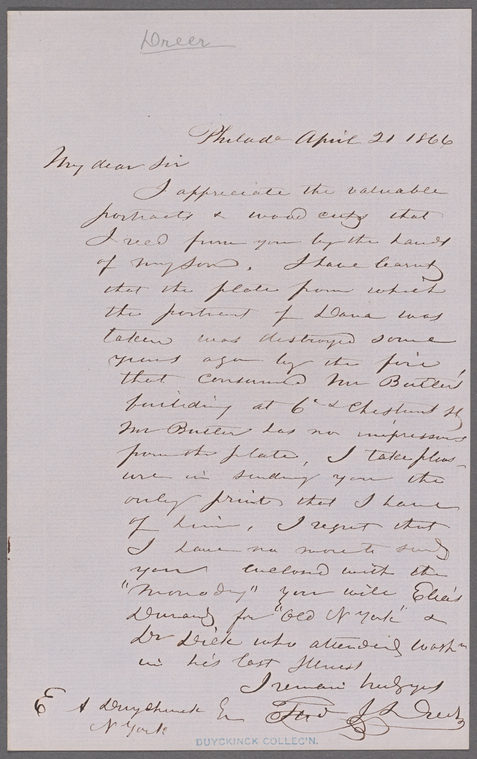 Dreer
Philada April 21 1866
My dear Sir
I appreciate the valuable
portraits & wood cuts that
I recd from you by the hands
of my son. I have learnt
that the plate from which
the portrait of Dana was
taken was destroyed some
years ago by the fire
that consumed Mr Butler's
building at 6th & Chestnut St
Mr Butler has no impressions
from the plate, I take pleas-
ure in sending you the
only print that I have
of him, I regret that
I have no more to send
you enclosed with the
"Monody" you will
Durand for "Old N York" &
Dr Dick who attended Washn
in his last Illness
I remain
E A Duyckinck Ferd J Dreer
N York
DUYCKINCK COLLEC'N.